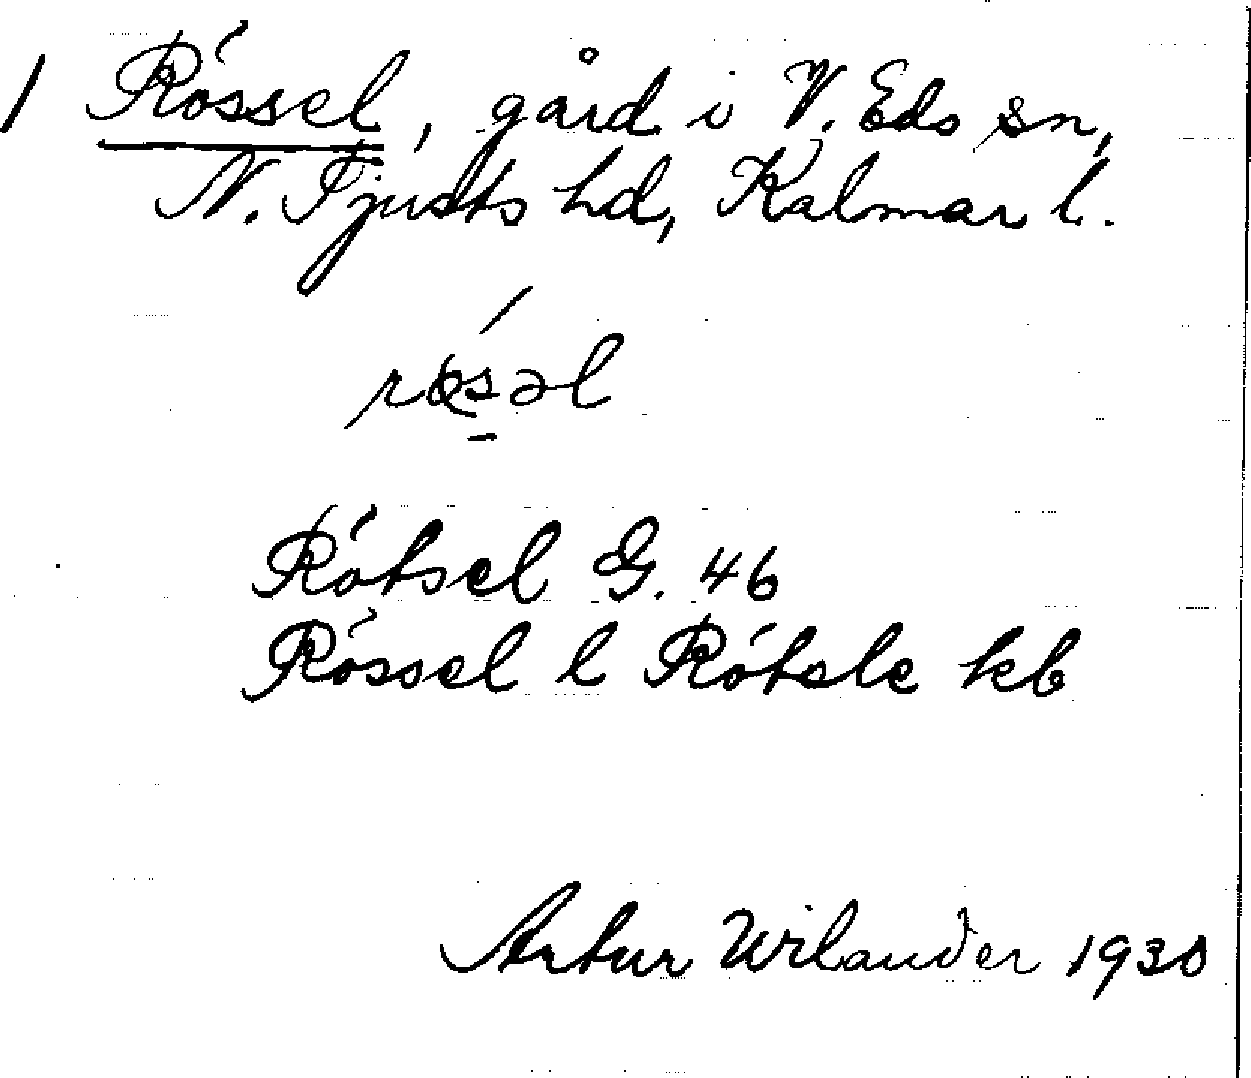 1 Rössel, gård i V. Eds sn,
N. Tjusts hd, Kalmar l.
Rötsel G. 46
Rössel l Rötsle kb
Artur Wilander 1930